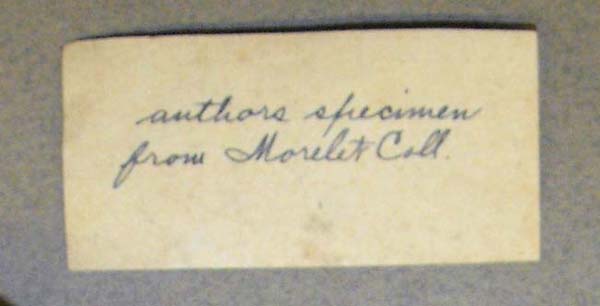 authors specimen
from Morelet Coll.